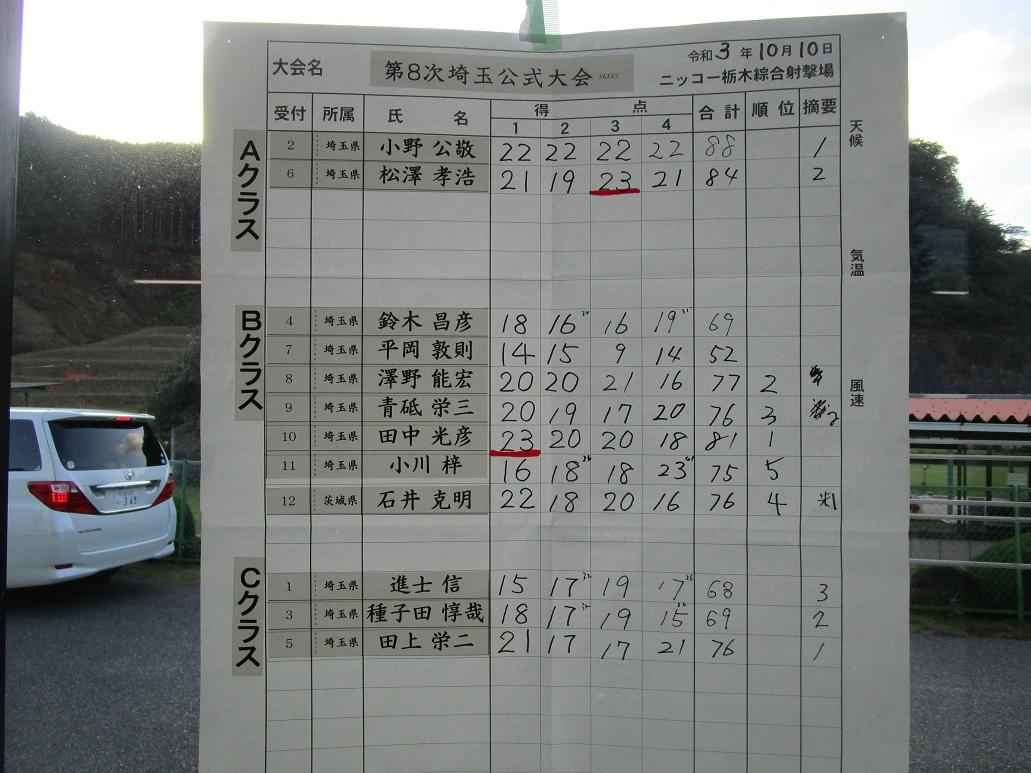 令和3年10月10日
大会名 第8次埼玉公式大会 SKEET ニッコー栃木綜合射撃場
受付 所属 氏名 得点 合計 順位 摘要
1 2 3 4
天候
Aクラス
2 埼玉県 小野 公敬 22 22 22 22 88 1
6 埼玉県 松澤 孝浩 21 19 23 21 84 2
気温
Bクラス
4 埼玉県 鈴木 昌彦 18 16 16 19 69
7 埼玉県 平岡 敦則 14 15 9 14 52
8 埼玉県 澤野 能宏 20 20 21 16 77 2
風速
9 埼玉県 青砥 栄三 20 19 17 20 76 3
10 埼玉県 田中 光彦 23 20 20 18 81 1
11 埼玉県 小川 梓 16 18 18 23 75 5
12 茨城県 石井 克明 22 18 20 16 76 4
Cクラス
1 埼玉県 進士 信 15 17 19 17 68 3
3 埼玉県 種子田 惇哉 18 17 19 15 69 2
5 埼玉県 田上 栄二 21 17 17 21 76 1